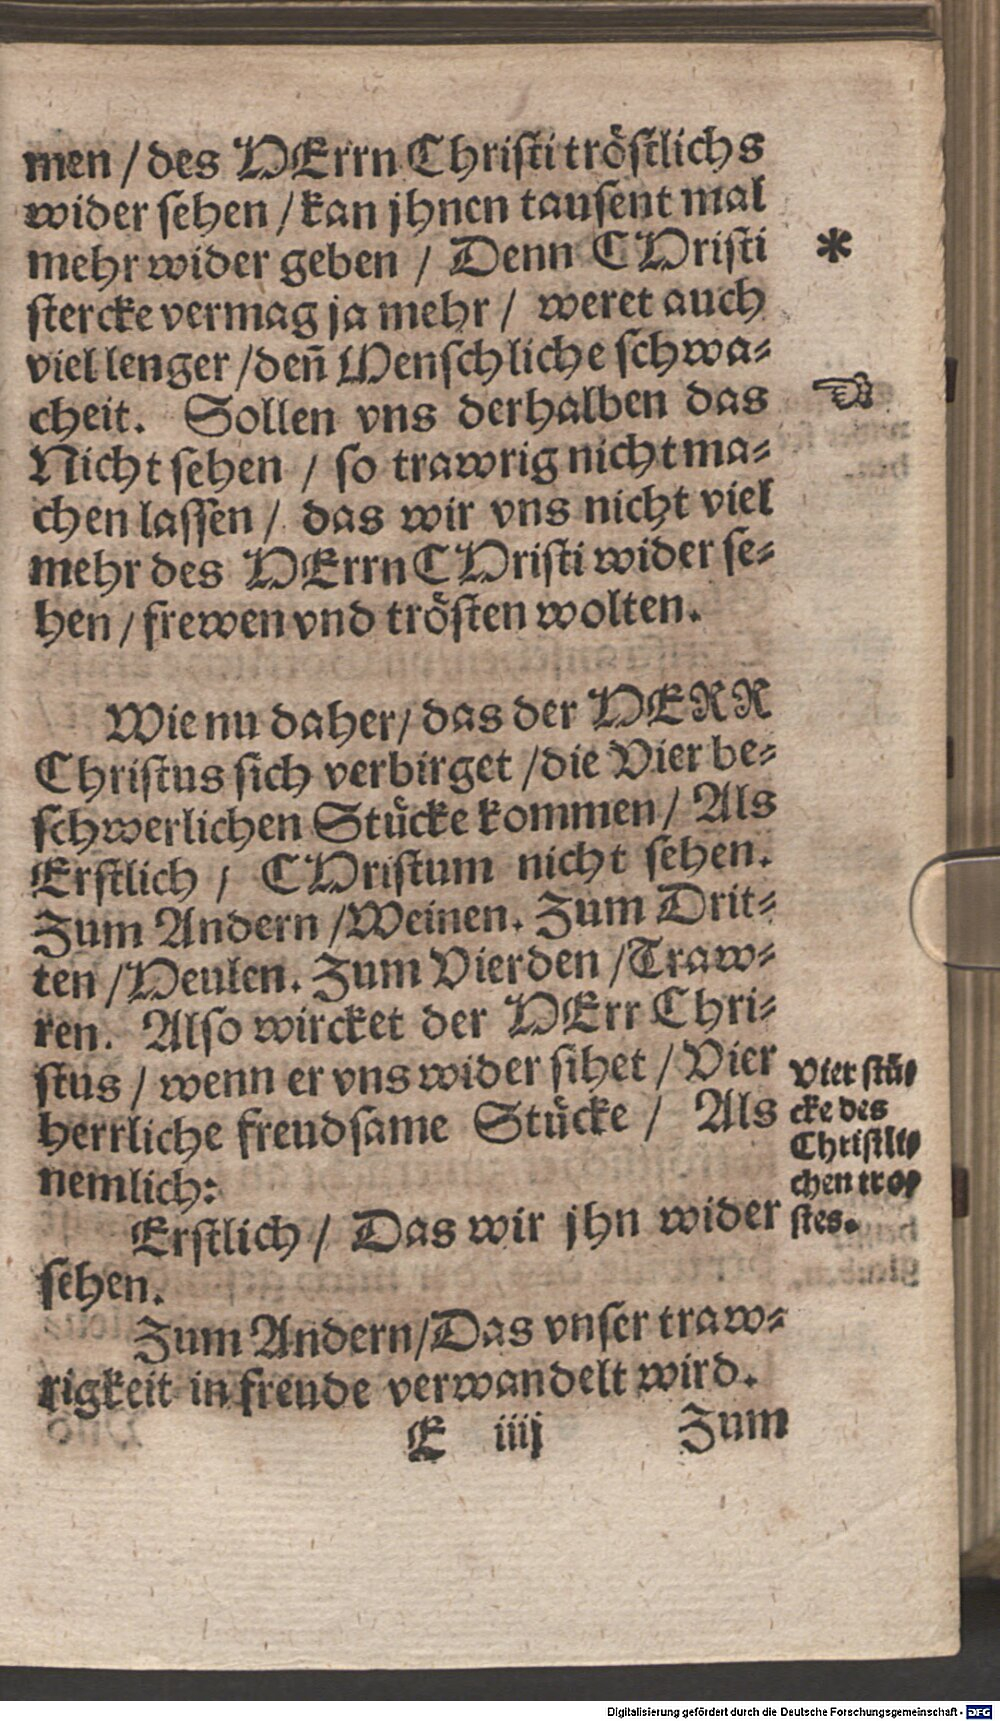 men / des HErrn Christi tröstlichs
wider sehen / kan jhnen tausent mal
mehr wider geben / Denn CHristi
*
stercke vermag ja mehr / weret auch
viel lenger / deñ Menschliche schwa-
cheit. Sollen vns derhalben das
☜
Nicht sehen / so trawrig nicht ma-
chen lassen / das wir vns nicht viel
mehr des HErrn CHristi wider se-
hen / frewen vnd trösten wolten.
Wie nu daher / das der HERR
Christus sich verbirget / die Vier be-
schwerlichen Stücke kommen / Als
Erstlich / CHristum nicht sehen.
Zum Andern / Weinen. Zum Drit-
ten / Heulen. Zum Vierden / Traw-
ren. Also wircket der HErr Chri-
stus / wenn er vns wider sihet / Vier
herrliche freudsame Stücke / Als
nemlich:
Vier stü-
cke des
Christli-
chen tro-
stes.
Erstlich / Das wir jhn wider
sehen.
Zum Andern / Das vnser traw-
rigkeit in freude verwandelt wird.
E iiij Zum
Digitalisierung gefördert durch die Deutsche Forschungsgemeinschaft - DFG